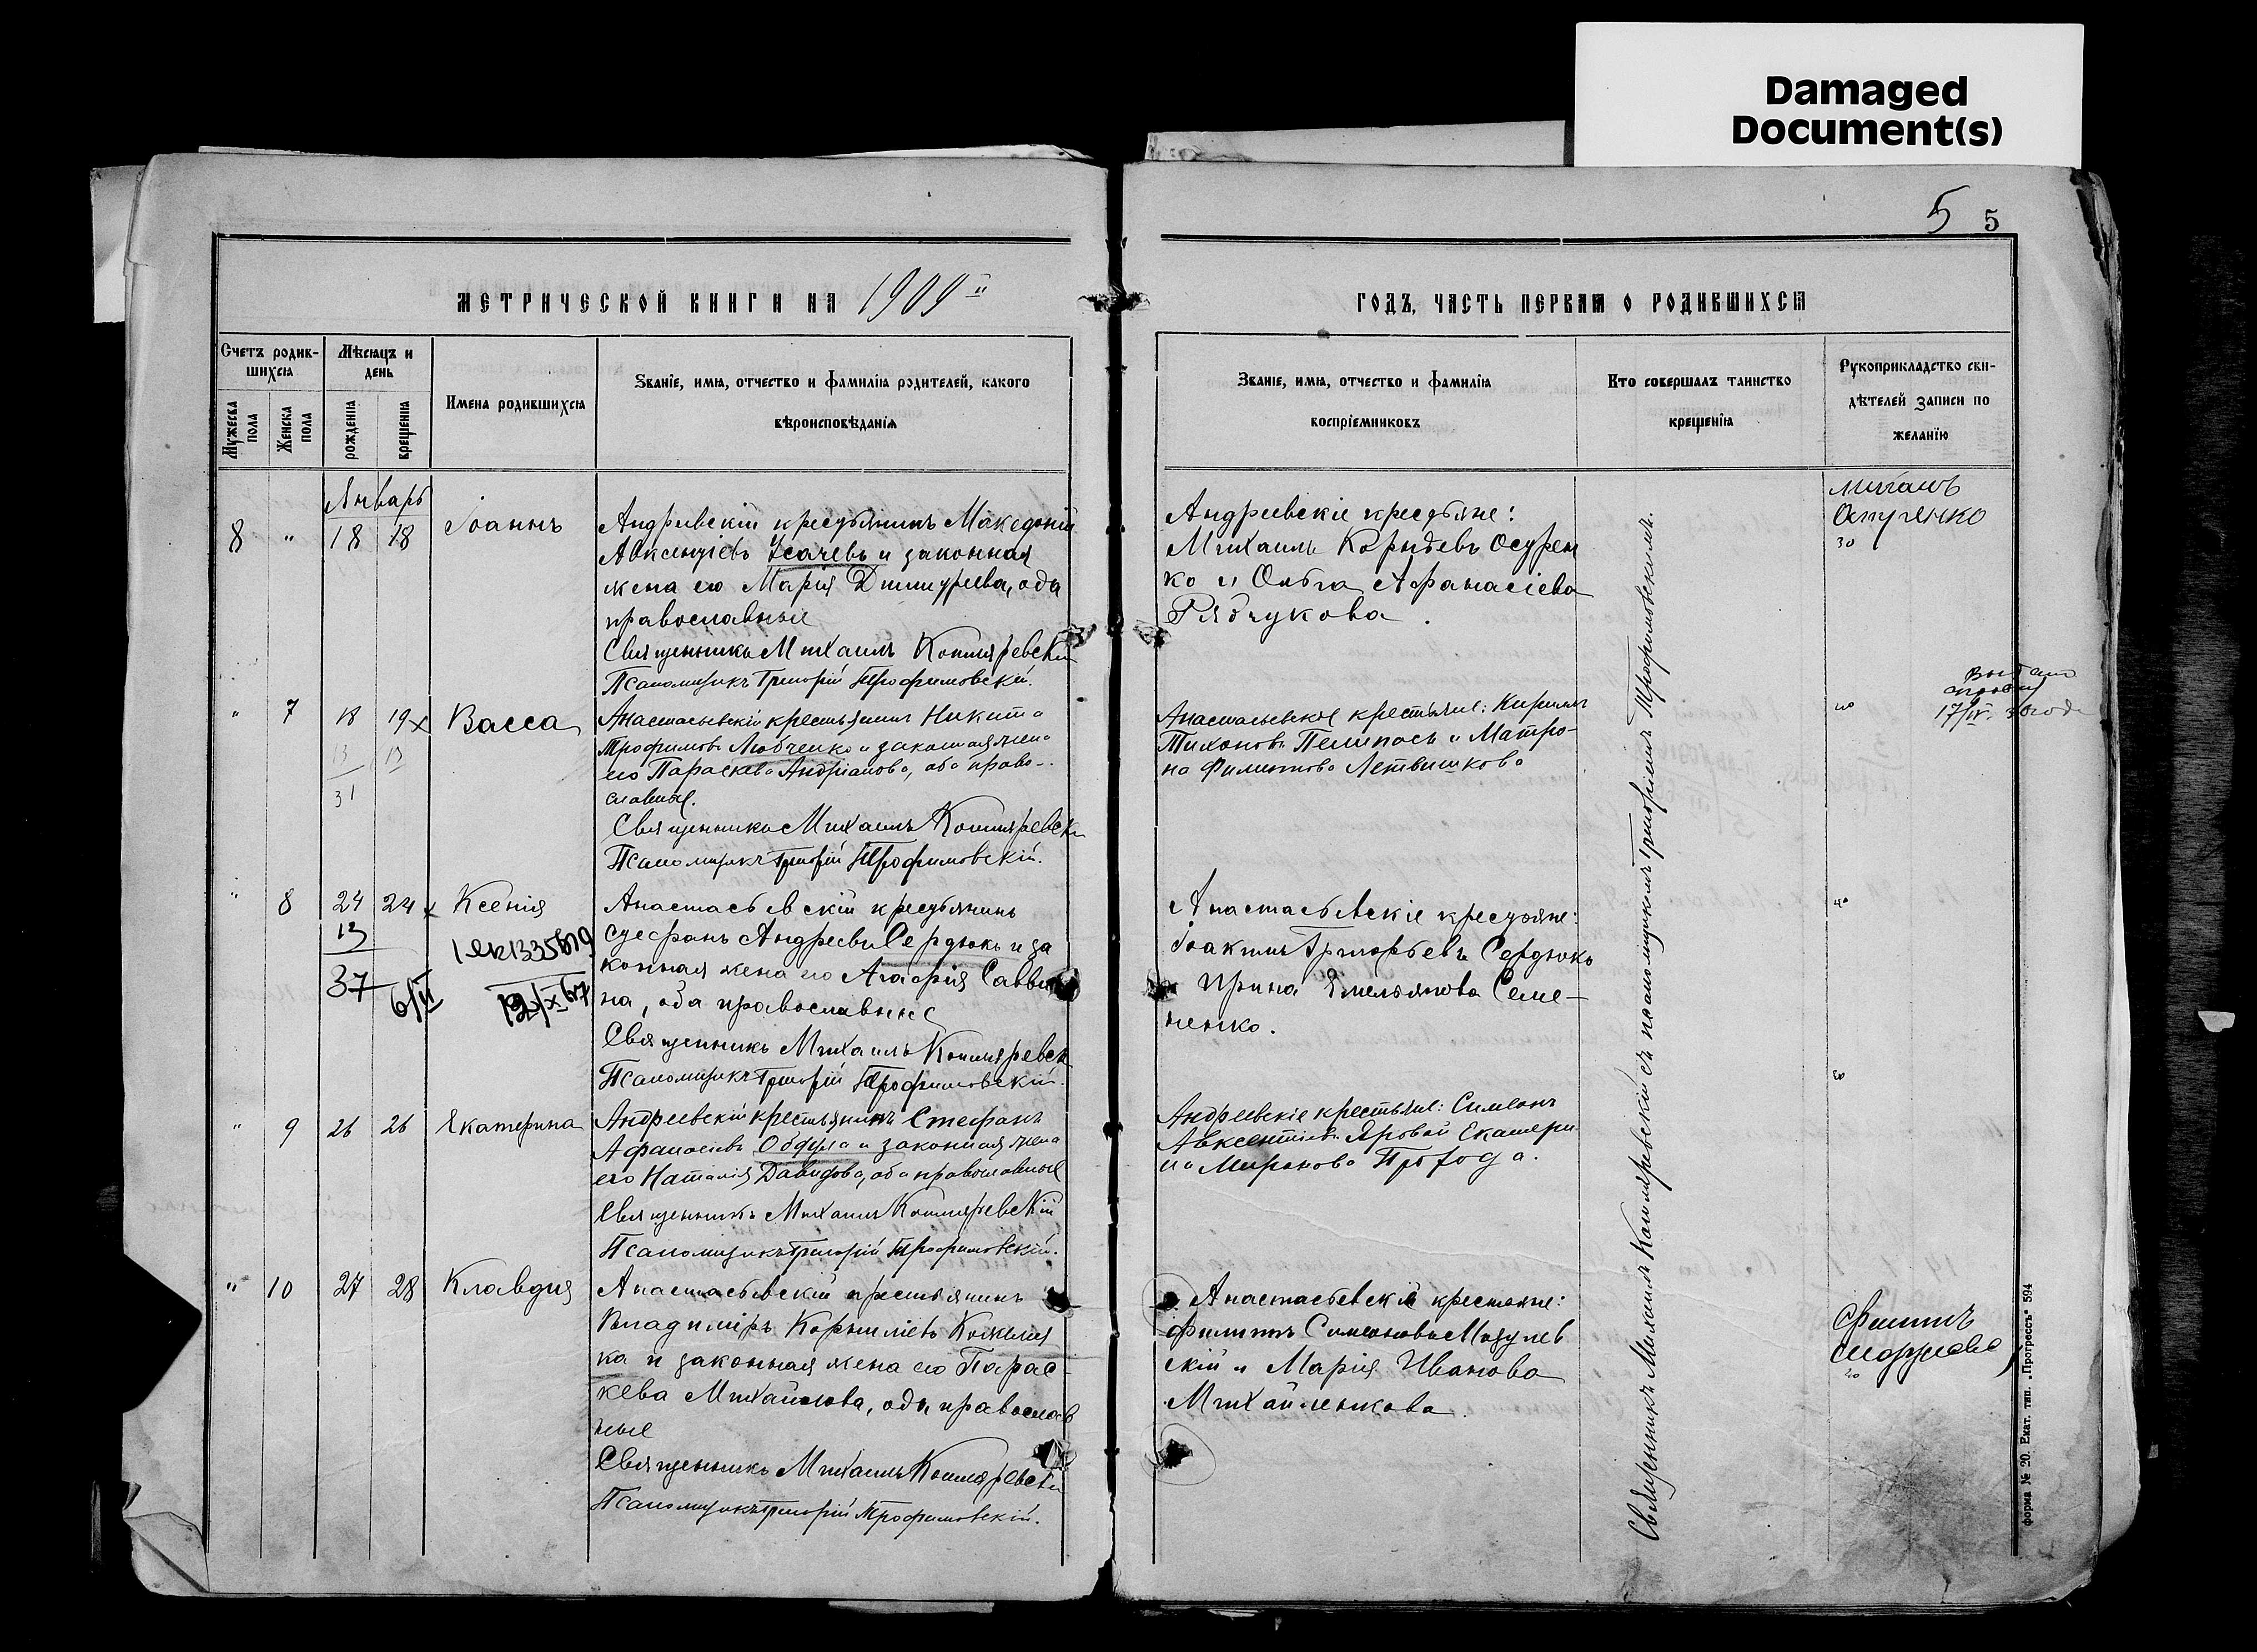 Damaged
Document(s)
5 5
МЕТРИЧЕСКОЙ КНИГИ НА 1909
ГОДЪ, ЧАСТЬ ПЕРВАЯ О РОДИВШИХСЯ
Счетъ родив-
шихся
Мѣсяцъ и
день
Мужеска
пола
Женска
пола
рожденія
крещенія
Имена родившихся
Званіе, имя, отчество и фамилія родителей, какого
вѣроисповѣданія
Званіе, имя, отчество и фамилія
воспріемниковъ
Кто совершалъ таинство
крещенія
Рукоприкладство сви-
дѣтелей записи по
желанію
Январь
8 " 18 18 Іоаннъ
Андреевскій крестьянинъ Македоній
Авксентіевъ Усачевъ и законная
жена его Марія Димитріева, оба
православные
Священникъ Михаилъ Котляревскій
Псаломщикъ Григорій Трофимовскій.
Андреевскіе крестьяне:
Михаилъ Осурен
ко и Ольга Афанасіева
Рябчукова.
" 7 18 19 x Васса
13 13
31
Анастасьевскій крестьянинъ Никита
Трофимовъ Любченко и законная жена
его Параскева Андріанова, оба право-
славные.
Священникъ Михаилъ Котляревскі
Псаломщикъ Григорій Трофимовскій.
Анастасьевскіе крестьяне: Кириллъ
Тихоновъ Пелипасъ и Матро-
на Филиппова
17/IV
" 8 24 24 x Ксенія
13
37
6/II
Анастасьевскій крестьянинъ
Стефанъ Андреевъ Сердюкъ и за
конная жена его Агафія Савви
на, оба православные
Священникъ Михаилъ Котляревск
Псаломщикъ Григорій Трофимовскій.
Анастасьевскіе крестьяне:
Іоакимъ Григорьевъ Сердюкъ
Ирина Емельянова Семе-
ненко.
" 9 26 26 Екатерина
Андреевскій крестьянинъ Стефанъ
Афанасіевъ и законная жена
его Наталія Давидова, оба православные
Священникъ Михаилъ Котляревскій
Псаломщикъ Григорій Трофимовскій.
Андреевскіе крестьяне: Симеонъ
Авксентіевъ Яровой Екатери
на Миронова
" 10 27 28 Клавдія
Анастасьевскій крестьянинъ
Владиміръ Корниліевъ Кожемя
ка и законная жена его Парас-
кева Михайлова, оба православ
ные
Священникъ Михаилъ Котляревскі
Псаломщикъ Григорій Трофимовскій.
Анастасьевскіе крестьяне:
Филиппъ Симеоновъ
скій и Марія Иванова
Михайленкова
Священникъ Михаилъ Котляревскій съ псаломщикомъ Григоріемъ Трофимовскимъ.
форма № 20. Екат. тип. „Прогрессъ" 594